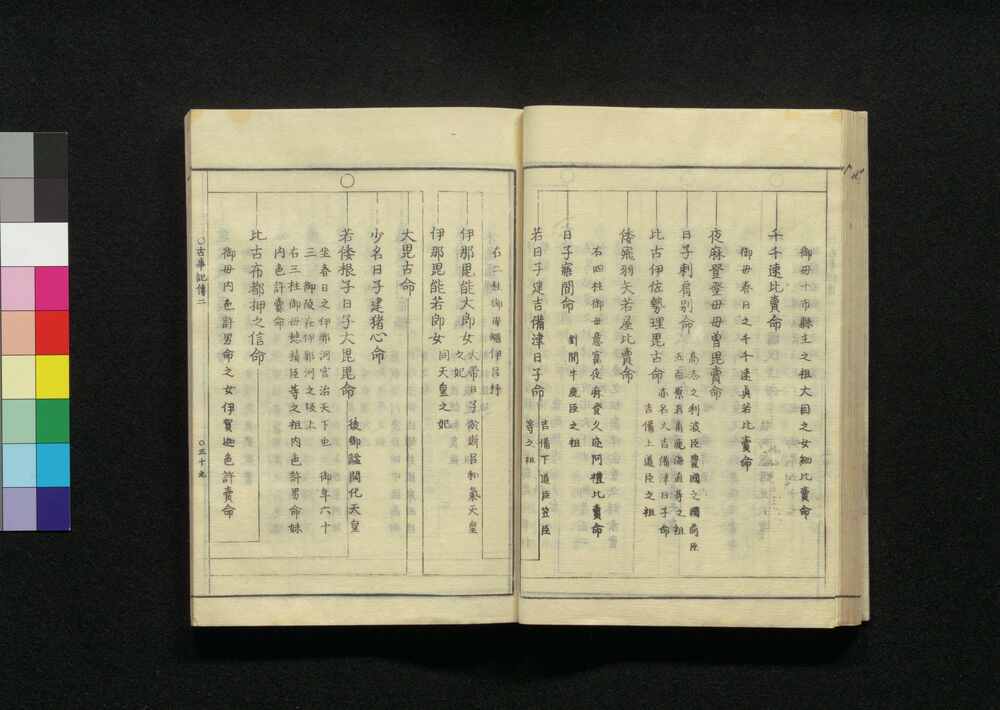 御母十市縣主之祖大目之女細比賣命
千千速比賣命
御母春日之千千速真若比賣命
夜麻登登母母曽毘賣命
日子刺肩別命
高志之利波臣豊國之國前臣
五百原君角鹿海直等之祖
比古伊佐勢理毘古命
亦名大吉備津日子命
吉備上道臣之祖
倭飛羽矢若屋比賣命
右四柱御母意富夜麻登久邇阿禮比賣命
日子寤間命
針間牛鹿臣之祖
若日子建吉備津日子命
吉備下道臣笠臣
等之祖
右二柱御母蠅伊呂杼
伊那毘能大郎女
大帯日子淤斯呂和氣天皇
之妃
伊那毘能若郎女
同天皇之妃
大毘古命
少名日子建猪心命
若倭根子日子大毘毘命
後御諡開化天皇
坐春日之伊邪河宮治天下也 御年六十
三 御陵在伊邪河之坂上
右三柱御母穂積臣等之祖内色許男命妹
内色許賣命
比古布都押之信命
御母内色許男命之女伊賀迦色許賣命
○古事記傳二
○三十九